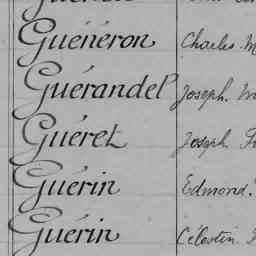 Guénéron Charles. M
Guérandel Joseph. M
Guéret Joseph
Guérin Edmond.
Guérin Célestin